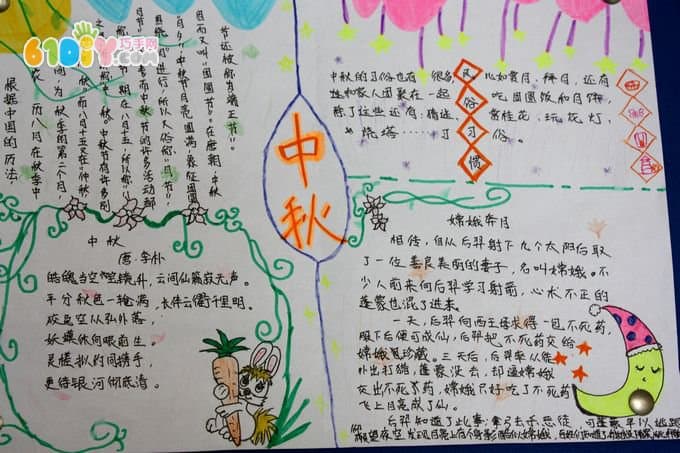 610iY巧手网
.com
根据中国的历法
历八月在秋季中
间,为秋季的第二个月,
而八月十五又在“仲秋”
之 中秋节有许多别
节期在八月十五,所以称“八
中秋节的许多活动都
进行的,所以又俗称“月节”
中秋节月亮圆满,象征团圆
因而又叫“团圆节”。在唐朝,中秋
节还被称为端正节”。
中秋
民俗习惯
中秋的习俗也有很多 比如赏月、拜月,还有
和家人团聚在一起 吃团圆饭和月饼,
除了这些还有:猜谜、赏桂花、玩花灯,
烧塔…… 习俗。
中秋
唐·李朴
皓魄当空宝镜升,云间仙籁寂无声。
平分秋色一轮满,长伴云衢千里明。
狡兔空从弦外落,
妖蟆休向眼前生。
灵槎拟约同携手,
更待银河彻底清。
嫦娥奔月
相传,自从后羿射下九个太阳后取
了一位善良美丽的妻子,名叫嫦娥。不
少人前来向后羿学习射箭,心术不正的
蓬蒙也混了进来。
一天,后羿向西王母求得一包不死药,
服下后便可成仙,后羿把不死药交给
嫦娥 珍藏。三天后,后羿率众徒
外出打猎,蓬蒙没去,却逼嫦娥
交出不死药,嫦娥只好吃了不死药
飞上月亮成了仙。
后羿知道了此事